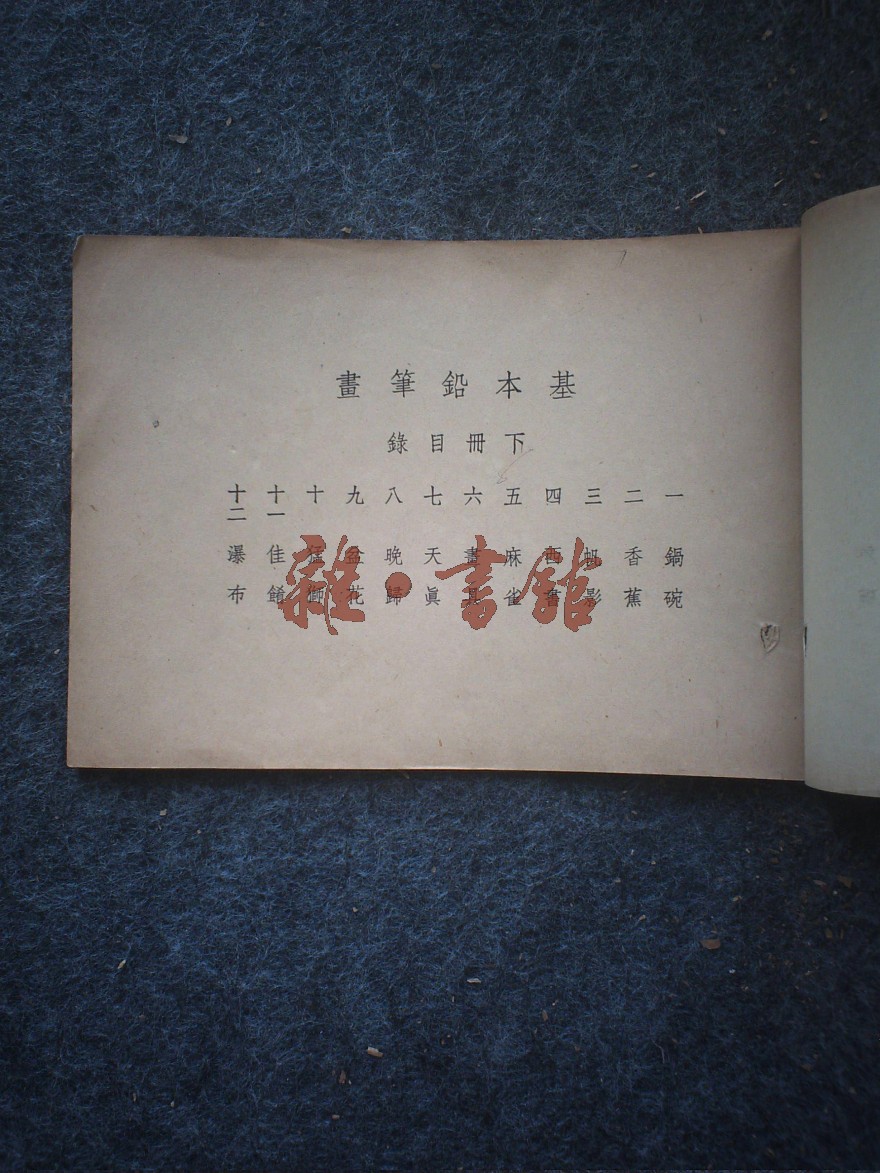 基本鉛筆畫
下冊目錄
一 鍋碗
二 香蕉
三 帆影
四 西書
五 麻雀
六 畫具
七 天眞
八 晚歸
九 盆花
十 猛獅
十一 佳餚
十二 瀑布
雜·書館